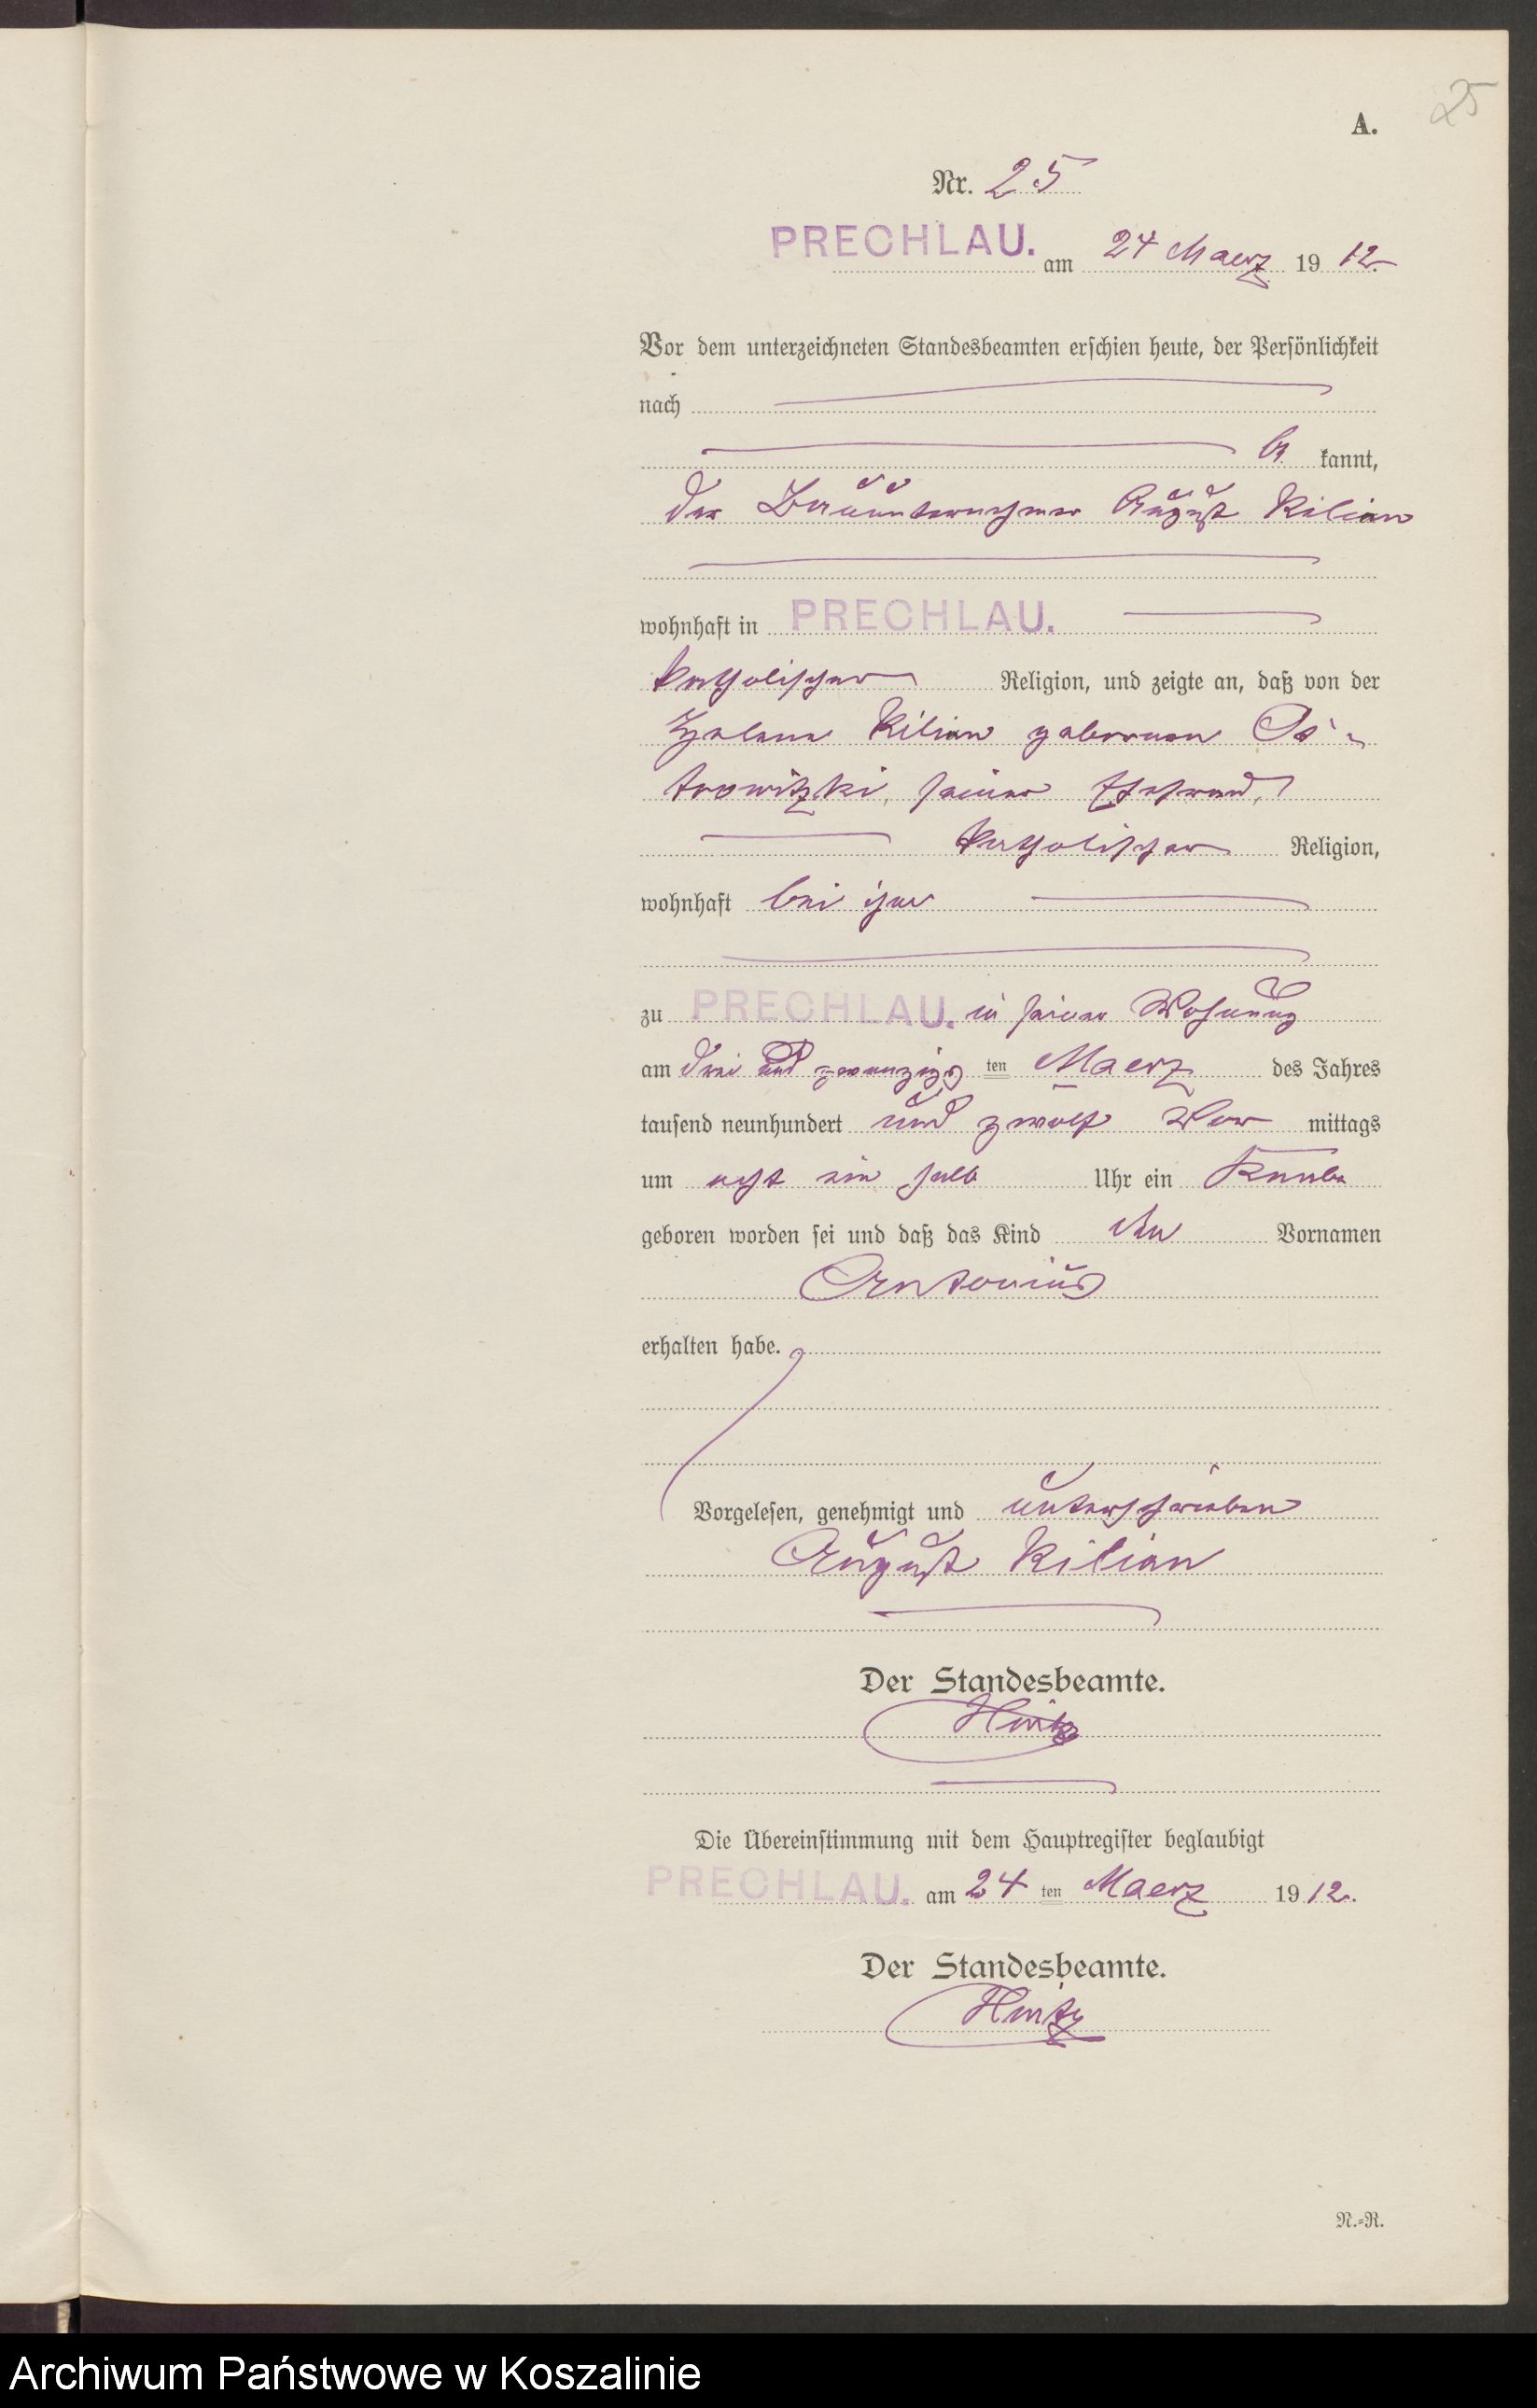 25
A.
Nr. 25
PRECHLAU. am 24 Maerz 1912.
Vor dem unterzeichneten Standesbeamten erschien heute, der Persönlichkeit
nach
be kannt,
der Bauunternehmer August Kilian
wohnhaft in PRECHLAU.
katholischer Religion, und zeigte an, daß von der
Helene Kilian geborenen Os-
trowitzki, seiner Ehefrau,
katholischer Religion,
wohnhaft bei ihm
zu PRECHLAU. in seiner Wohnung
am drei und zwanzig ten Maerz des Jahres
tausend neunhundert und zwölf Vor mittags
um acht ein halb Uhr ein Knabe
geboren worden sei und daß das Kind den Vornamen
Antonius
erhalten habe.
Vorgelesen, genehmigt und unterschrieben
August Kilian
Der Standesbeamte.
Hintz
Die Übereinstimmung mit dem Hauptregister beglaubigt
PRECHLAU. am 24 ten Maerz 1912.
Der Standesbeamte.
Hintz
N.=R.
Archiwum Państwowe w Koszalinie